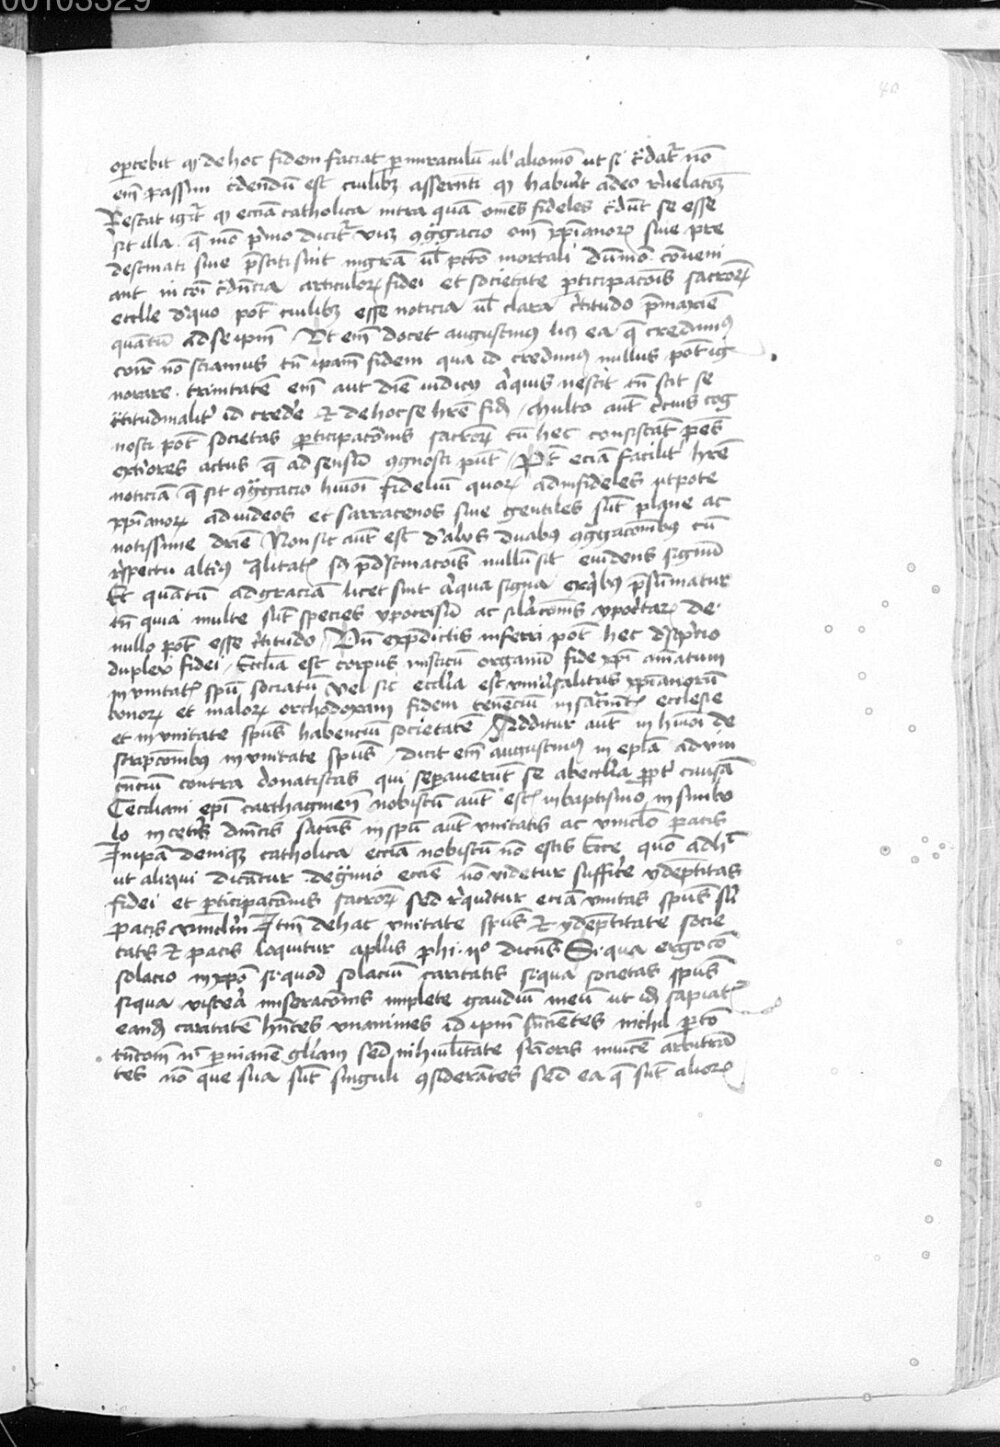 00103329
40
oportebit q de hoc fidem faciat p miraculū ul' alio mō ut si c̄dat̄ nō
em̄ passim c̄dendū est cuilibꝫ asserenti q habuit a deo r̄uelatōꝫ
Restat igit̄ q ecc̄ia catholica intra quā om̄es fideles c̄dūt se esse
sit illa q̄ mō p̄mo dicit̄ uiꝫ ꝯg̃gacio om̄ xp̄ianoꝝ siue pre
destinati siue p̄sciti sint in gr̄a ul̄ pctō mortali dūmō conueni
ant in cōi c̄dn̄cia articuloꝝ fidei et societate p̱ticipacōis sacroꝝ
eccl̄ie d̓ quo pot̄ cuilibꝫ esse noticia ul̄ clara c̄titudo p̄maxīe
quātū ad se ip̄m Ut em̄ docet augustinus licꝫ ea q̄ credimꝰ
coīr nō sciamus tn̄ ipam fidem qua id credimꝰ nullus pot̄ ig
norare trinitatē em̄ aut diē iudicij a̓quis nescit tn̄ scit se
c̄titudinalit̓ id creder̄ et de hoc se hr̄e fidē Multo aut̄ c̄cius cog
nosci pot̄ societas p̱ticipacōnis sacroꝝ cū hec consistat penes
ext̓iores actus q̄ ad sensū ꝯgnosci pn̄t Pot̄ eciā facilit̓ hr̄e
noticiā q̄ sit ꝯg̃gacio hmōi fideliū quoꝝ ad infideles utpote
xp̄ianoꝝ ad iudeos et sarracenos siue gentiles sūt plane ac
notissime dr̄ie Non sic aut̄ est d̓ alijs duabꝫ ꝯg̃gacōnibꝫ cū
r̄spectu altiꝰ q̄litatꝭ sꝫ p̄d̓stinacōis nullū sit euidens signū
Et quātū ad graciā licet sint a̓qua signa ex qbꝫ p̄sumatur
tn̄ quia multe sūt species ypocrisis ac silacōnis ypocitaꝝ de
nullo pot̄ esse c̄titudo Un̄ ex p̄dictis inferri pot̄ hec d̓scp̄cio
duplex fidei Eccl̄ia est corpus misticū organiū fide xp̄i aīatum
in unitatꝭ sp̄u sociatū vel sic eccl̄ia est uniu̓salitas xp̄ianorū
bonoꝝ et maloꝝ orthodoxam fidem tenenciū in sacr̄mētꝭ ecclesie
et in unitate sp̄us habenciū societatē Additur aut̄ in hmōi de
scripcōnibꝫ in unitate sp̄us dicit em̄ augustinus in ep̄la ad uin
cenciū contra donatistas qui sepauerūt se ab eccl̄ia ppt̓ causā
Ceciliani ep̄i carthaginen̄ nobiscū aut̄ estꝭ in baptismo in simbo
lo in cet̓is dn̄icis sacr̄is in sp̄u aut̄ unitatis ac uinclo pacis
In ip̄a deniqꝫ catholica ecc̄ia nobiscū nō estis Ecce quō adhᷓ
ut aliqui dicantur de g̃mio eccīe nō videtur suffic̓e ydēptitas
fidei et p̱ticipacōnis sacroꝝ sed r̄quiritur eciā unitas sp̄us siū
pacis uinclm̄ Itm̄ de hac unitate sp̄us et ydēptitate socie
tatis et pacis loquitur aplus phi. ijº dicēs Si qua ergo cō
solacio in xpō si quod solaciū caritatis si qua societas sp̄us
si qua viscera miseracōnis implete gaudiū meū ut idē sapiatꝭ
eandē caritatē hn̄tes unanimes id ip̄m sn̄cientes nichil p̱ cō
tn̄com̄ nᶜ p inanē gl̄iam sed in hūilitate supioris inuicē arbitrā
tes nō que sua sūt singuli ꝯsiderātes sed ea q̄ sūt alioꝝ